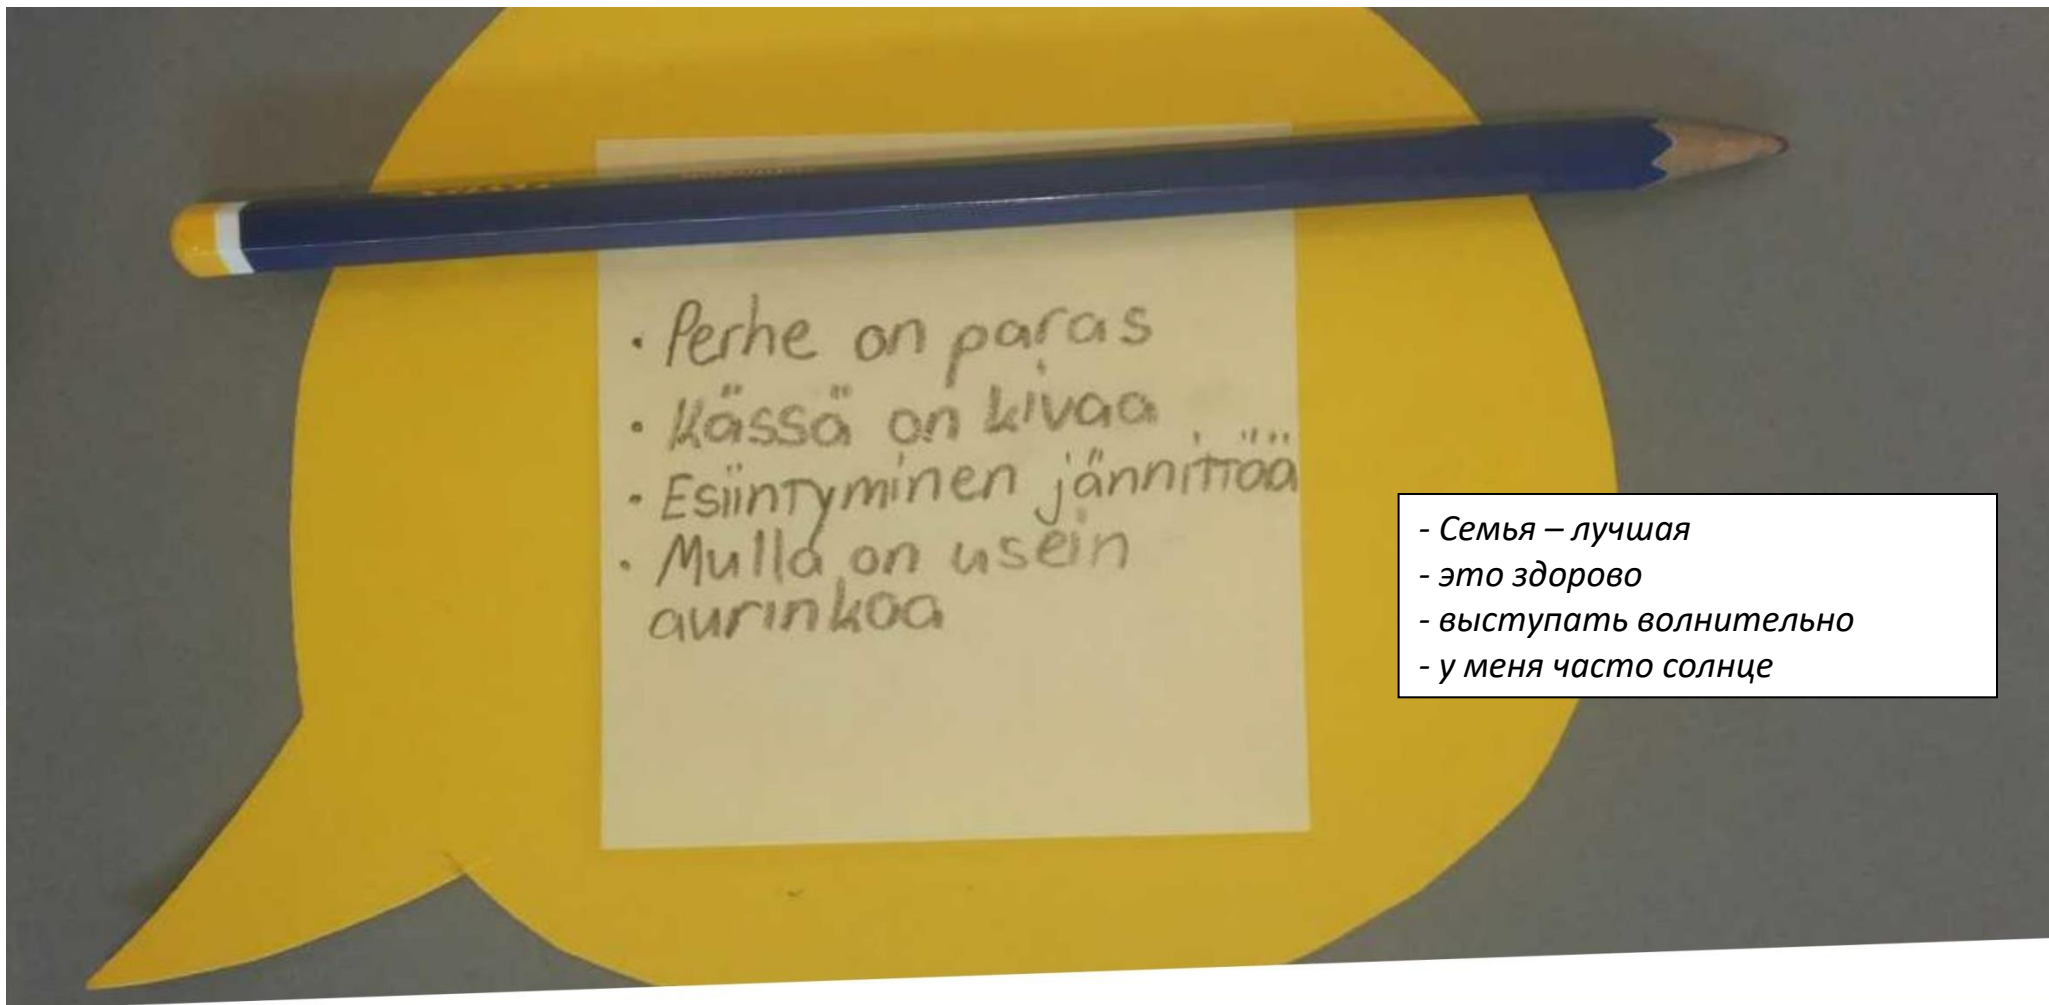 · Perhe on paras
· Kässä on kivaa
· Esiintyminen jännittää
· Mulla on usein
aurinkoa
- Семья – лучшая
- это здорово
- выступать волнительно
- у меня часто солнце